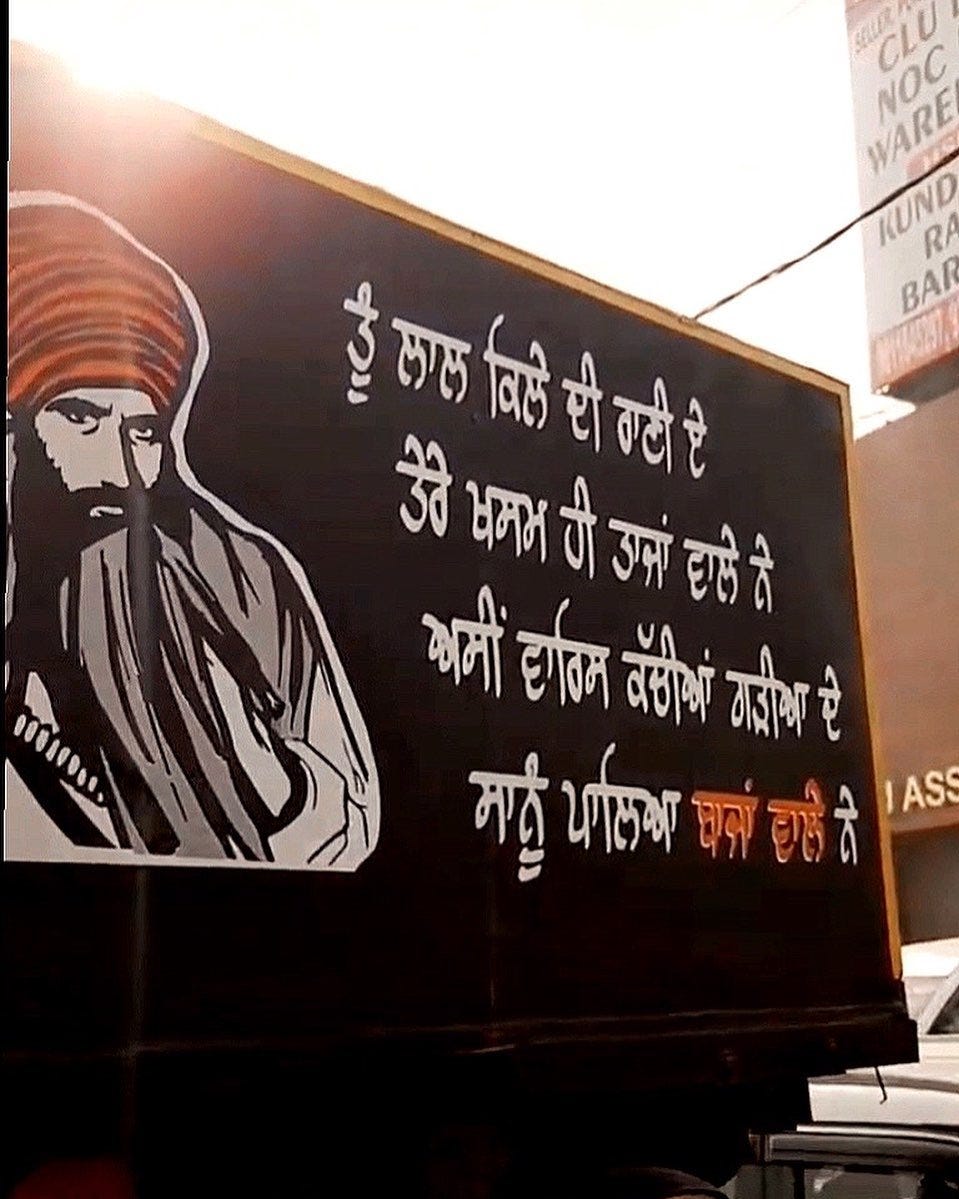 ਤੂੰ ਲਾਲ ਕਿਲੇ ਦੀ ਰਾਣੀ ਏ
ਤੇਰੇ ਖਸਮ ਹੀ ਤਾਜਾਂ ਵਾਲੇ ਨੇ
ਅਸੀਂ ਵਾਰਿਸ ਕੱਚੀਆਂ ਗੜੀਆ ਦੇ
ਸਾਨੂੰ ਪਾਲਿਆ ਬਾਜਾਂ ਵਾਲੇ ਨੇ
SELLER
CLU
NOC
WARE
KUND
RA
BAR
ASS